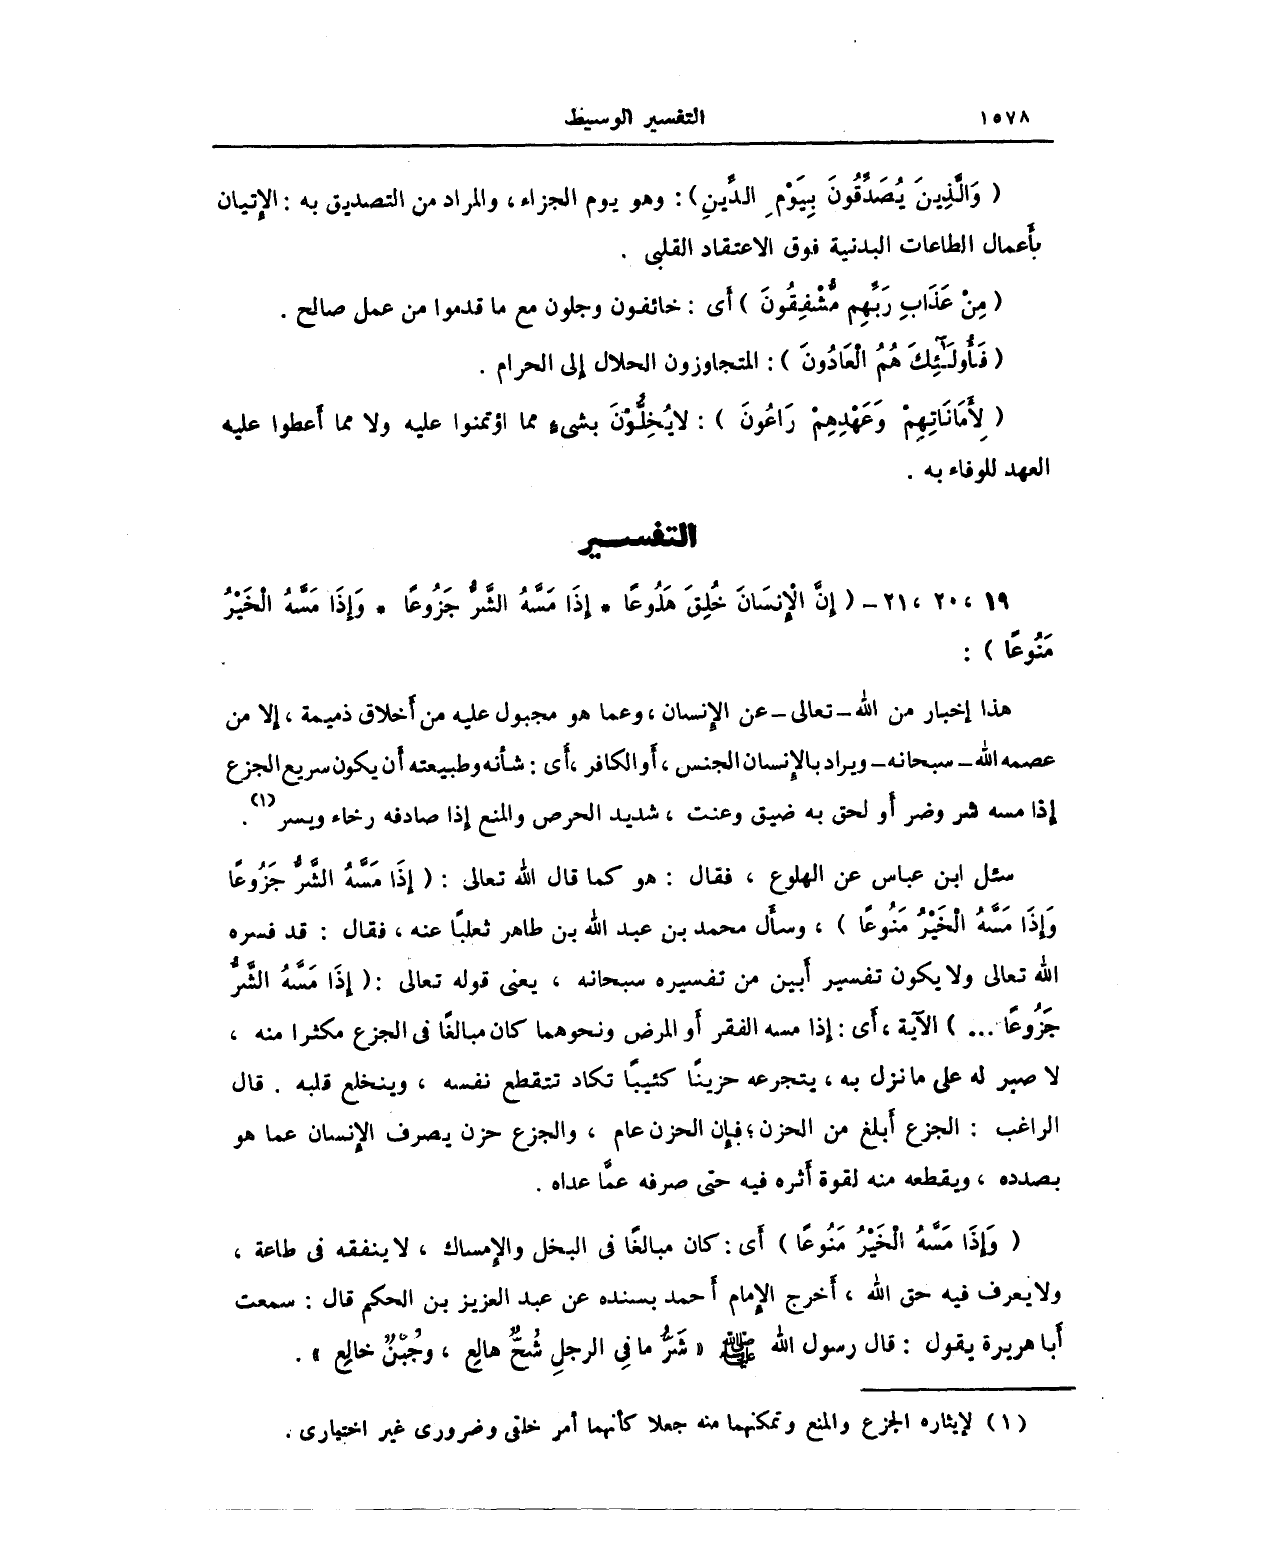 ١٥٧٨ التفسير الوسيط
( وَالَّذِينَ يُصَدِّقُونَ بِيَوْمِ الدِّينِ ) : وهو يوم الجزاء ، والمراد من التصديق به : الإتيان
بأعمال الطاعات البدنية فوق الاعتقاد القلبى .
( مِنْ عَذَابِ رَبِّهِم مُّشْفِقُونَ ) أى : خائفون وجلون مع ما قدموا من عمل صالح .
( فَأُولَـٰٓئِكَ هُمُ الْعَادُونَ ) : المتجاوزون الحلال إلى الحرام .
( لِأَمَانَاتِهِمْ وَعَهْدِهِمْ رَاعُونَ ) : لايُخِلُّوْنَ بشىءٍ مما اؤتمنوا عليه ولا مما أعطوا عليه
العهد للوفاء به .
التفســـير
١٩ ، ٢٠ ، ٢١ـ ( إِنَّ الْإِنسَانَ خُلِقَ هَلُوعًا * إِذَا مَسَّهُ الشَّرُّ جَزُوعًا * وَإِذَا مَسَّهُ الْخَيْرُ
مَنُوعًا ) :
هذا إخبار من الله ـ تعالى ـ عن الإنسان ، وعما هو مجبول عليه من أخلاق ذميمة ، إلا من
عصمه الله ـ سبحانه ـ ويراد بالإنسان الجنس ، أو الكافر ، أى : شأنه وطبيعته أن يكون سريع الجزع
إذا مسه شر وضر أو لحق به ضيق وعنت ، شديد الحرص والمنع إذا صادفه رخاء ويسر (١) .
سئل ابن عباس عن الهلوع ، فقال : هو كما قال الله تعالى : ( إِذَا مَسَّهُ الشَّرُّ جَزُوعًا
وَإِذَا مَسَّهُ الْخَيْرُ مَنُوعًا ) ، وسأل محمد بن عبد الله بن طاهر ثعلبًا عنه ، فقال : قد فسره
الله تعالى ولا يكون تفسير أبين من تفسيره سبحانه ، يعنى قوله تعالى : ( إِذَا مَسَّهُ الشَّرُّ
جَزُوعًا ... ) الآية ، أى : إذا مسه الفقر أو المرض ونحوهما كان مبالغًا فى الجزع مكثرا منه ،
لا صبر له على ما نزل به ، يتجرعه حزينًا كئيبًا تكاد تتقطع نفسه ، وينخلع قلبه . قال
الراغب : الجزع أبلغ من الحزن ؛ فإن الحزن عام ، والجزع حزن يصرف الإنسان عما هو
بصدده ، ويقطعه منه لقوة أثره فيه حتى صرفه عمَّا عداه .
( وَإِذَا مَسَّهُ الْخَيْرُ مَنُوعًا ) أى : كان مبالغًا فى البخل والإمساك ، لا ينفقه فى طاعة ،
ولا يعرف فيه حق الله ، أخرج الإمام أحمد بسنده عن عبد العزيز بن الحكم قال : سمعت
أبا هريرة يقول : قال رسول الله ﷺ « شَرُّ ما فى الرجلِ شُحٌّ هالع ، وجُبْنٌ خالع » .
(١) لإيثاره الجزع والمنع وتمكنهما منه جعلا كأنهما أمر خلقى وضرورى غير اختيارى .